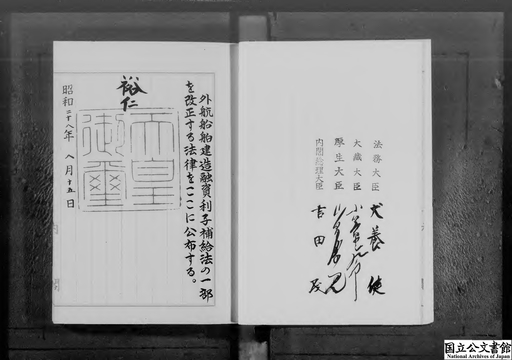 法務大臣 犬養健
大蔵大臣
厚生大臣
内閣総理大臣 吉田茂
外航船舶建造融資利子補給法の一部
を改正する法律をここに公布する。
裕仁
天皇
御璽
昭和二十八年八月十五日
国立公文書館
National Archives of Japan